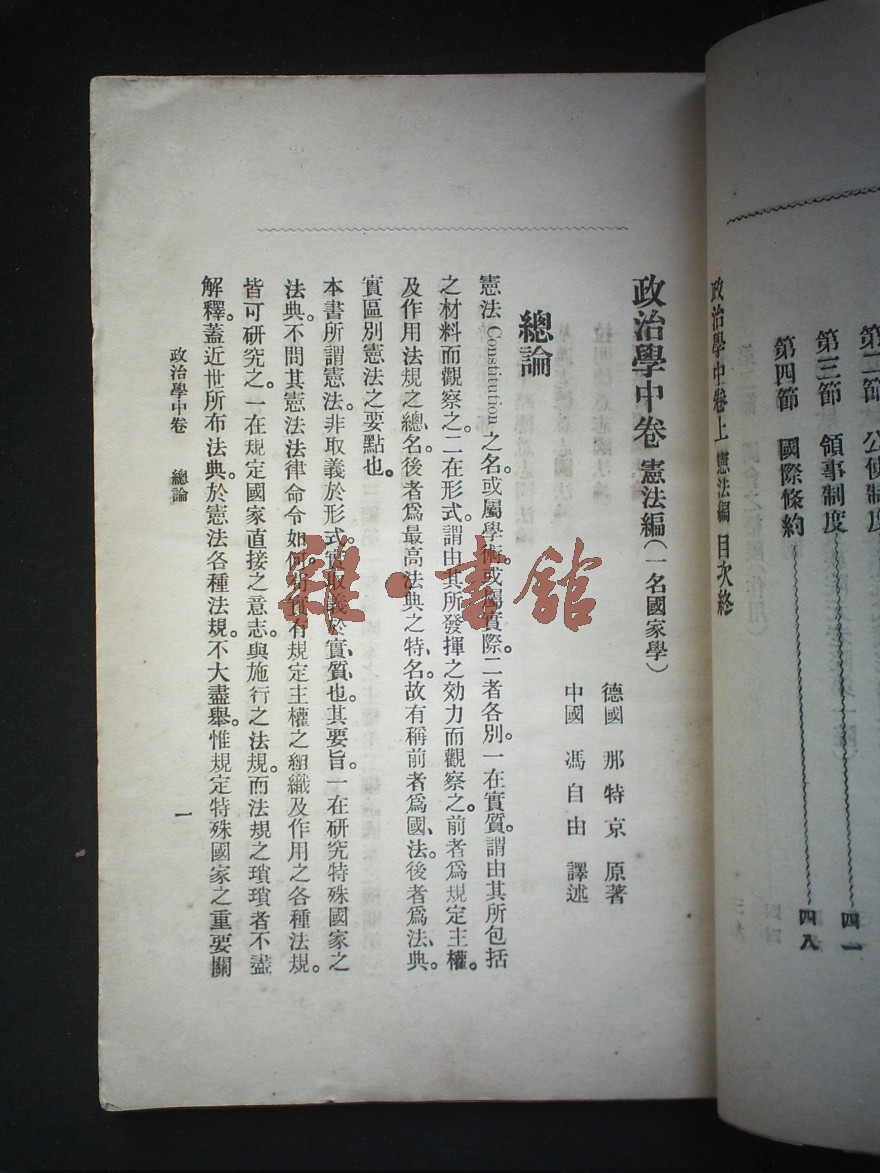 第二節 公使制度
第三節 領事制度 四一
第四節 國際條約 四八
政治學中卷上 憲法編 目次終
政治學中卷 憲法編(一名國家學)
德國 那特京 原著
中國 馮自由 譯述
總論
憲法Constitution之名。或屬學術。或屬實際。二者各別。一在實質。謂由其所包括
之材料而觀察之。二在形式。謂由其所發揮之効力而觀察之。前者爲規定主權。
及作用法規之總名。後者爲最高法典之特名。故有稱前者爲國法。後者爲法典。
實區別憲法之要點也。
本書所謂憲法。非取義於形式。實取義於實質也。其要旨。一在研究特殊國家之
法典。不問其憲法法律命令如何。苟有規定主權之組織及作用之各種法規。
皆可研究之。一在規定國家直接之意志。與施行之法規。而法規之瑣瑣者不盡
解釋。蓋近世所布法典。於憲法各種法規。不大盡舉。惟規定特殊國家之重要關
政治學中卷 總論 一
雜·書館